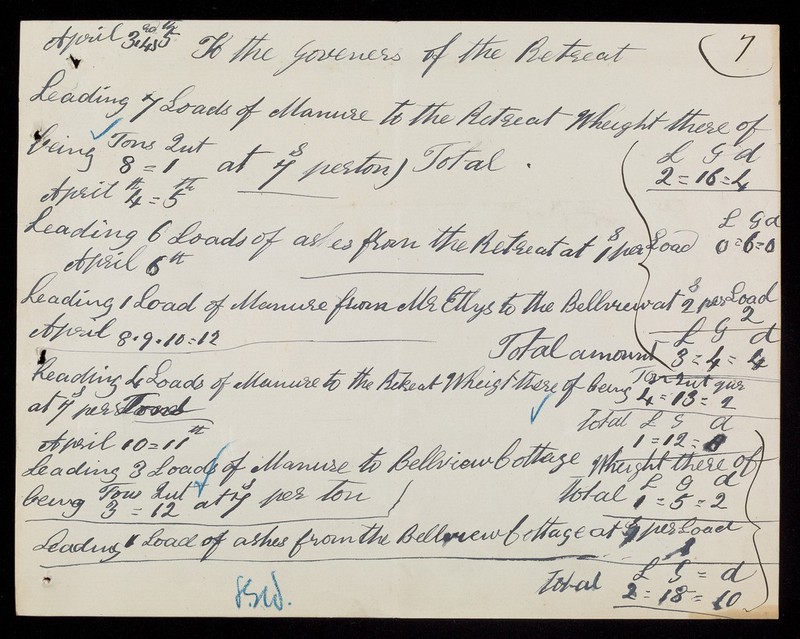 April 3rd 4th 5th To the Goveners of the Retreat 7
Leading 7 Loads of Manure to the Retreat Wheight there of
being Tons Qut 8 = 1 at 7s per ton) Total .
£ S d
2 = 16 = 4
April 4th = 5th
Leading 6 Loads of ashes from the Retreat at 1s per Load
£ S d
0 = 6 = 0
April 6th
Leading 1 Load of Manure from Mr to the Bellview at 2s per Load
2
April 8.9.10=12
Total amount £ S d 3 = 4 = 4
Leading 4 Loads of Manure to the Retreat Wheigt there of being Ton Qut qur 4 = 13 = 2
at 7s per Tons
Total £ S d
1 = 12 =
April 10 = 11th
Leading 3 Loads of Manure to Bellview Cottage Wheight there of
being Tons Qut 3 = 12 at 7s per ton
Total £ S d 1 = 5 = 2
Leading 1 Load of ashes from the Bellview Cottage at per Load
Total £ S = d
2 = 18 = 10